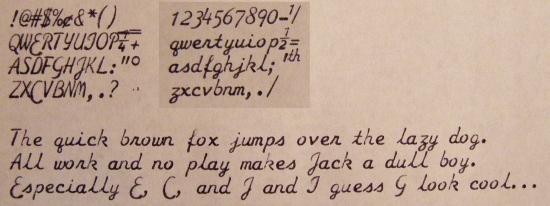 !@#$%¢&*()
QWERTYUIOP¼+
ASDFGHJKL:"º
ZXCVBNM,.? ..
1234567890-!/
qwertyuiop½=
asdfghjkl;'th
zxcvbnm,./
The quick brown fox jumps over the lazy dog.
All work and no play makes Jack a dull boy.
Especially E, C, and J and I guess G look cool...